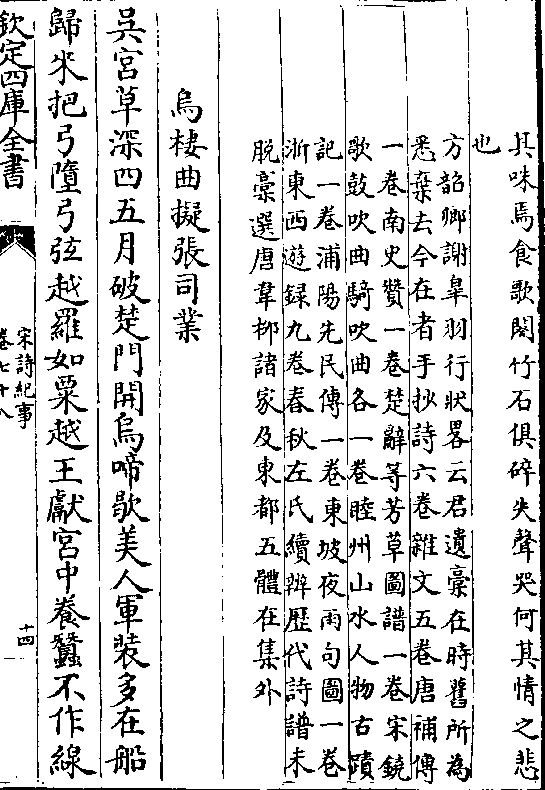 其咮焉食歌闋竹石俱碎失聲哭何其情之悲
也
方韶卿謝臯羽行狀畧云君遺稾在時舊所為
悉棄去今在者手抄詩六卷雜文五卷唐補傳
一卷南史贊一卷楚辭等芳草圖譜一卷宋鐃
歌鼓吹曲騎吹曲各一卷睦州山水人物古蹟
記一卷浦陽先民傳一卷東坡夜雨句圖一卷
浙東西遊録九卷春秋左氏續辨歷代詩譜未
脫稾選唐韋栁諸家及東都五體在集外
烏棲曲擬張司業
吳宮草深四五月破楚門開烏啼歇美人軍裝多在船
歸來把弓墮弓弦越羅如粟越王獻宮中養蠶不作線
欽定四庫全書
宋詩紀事
卷七十八
十四